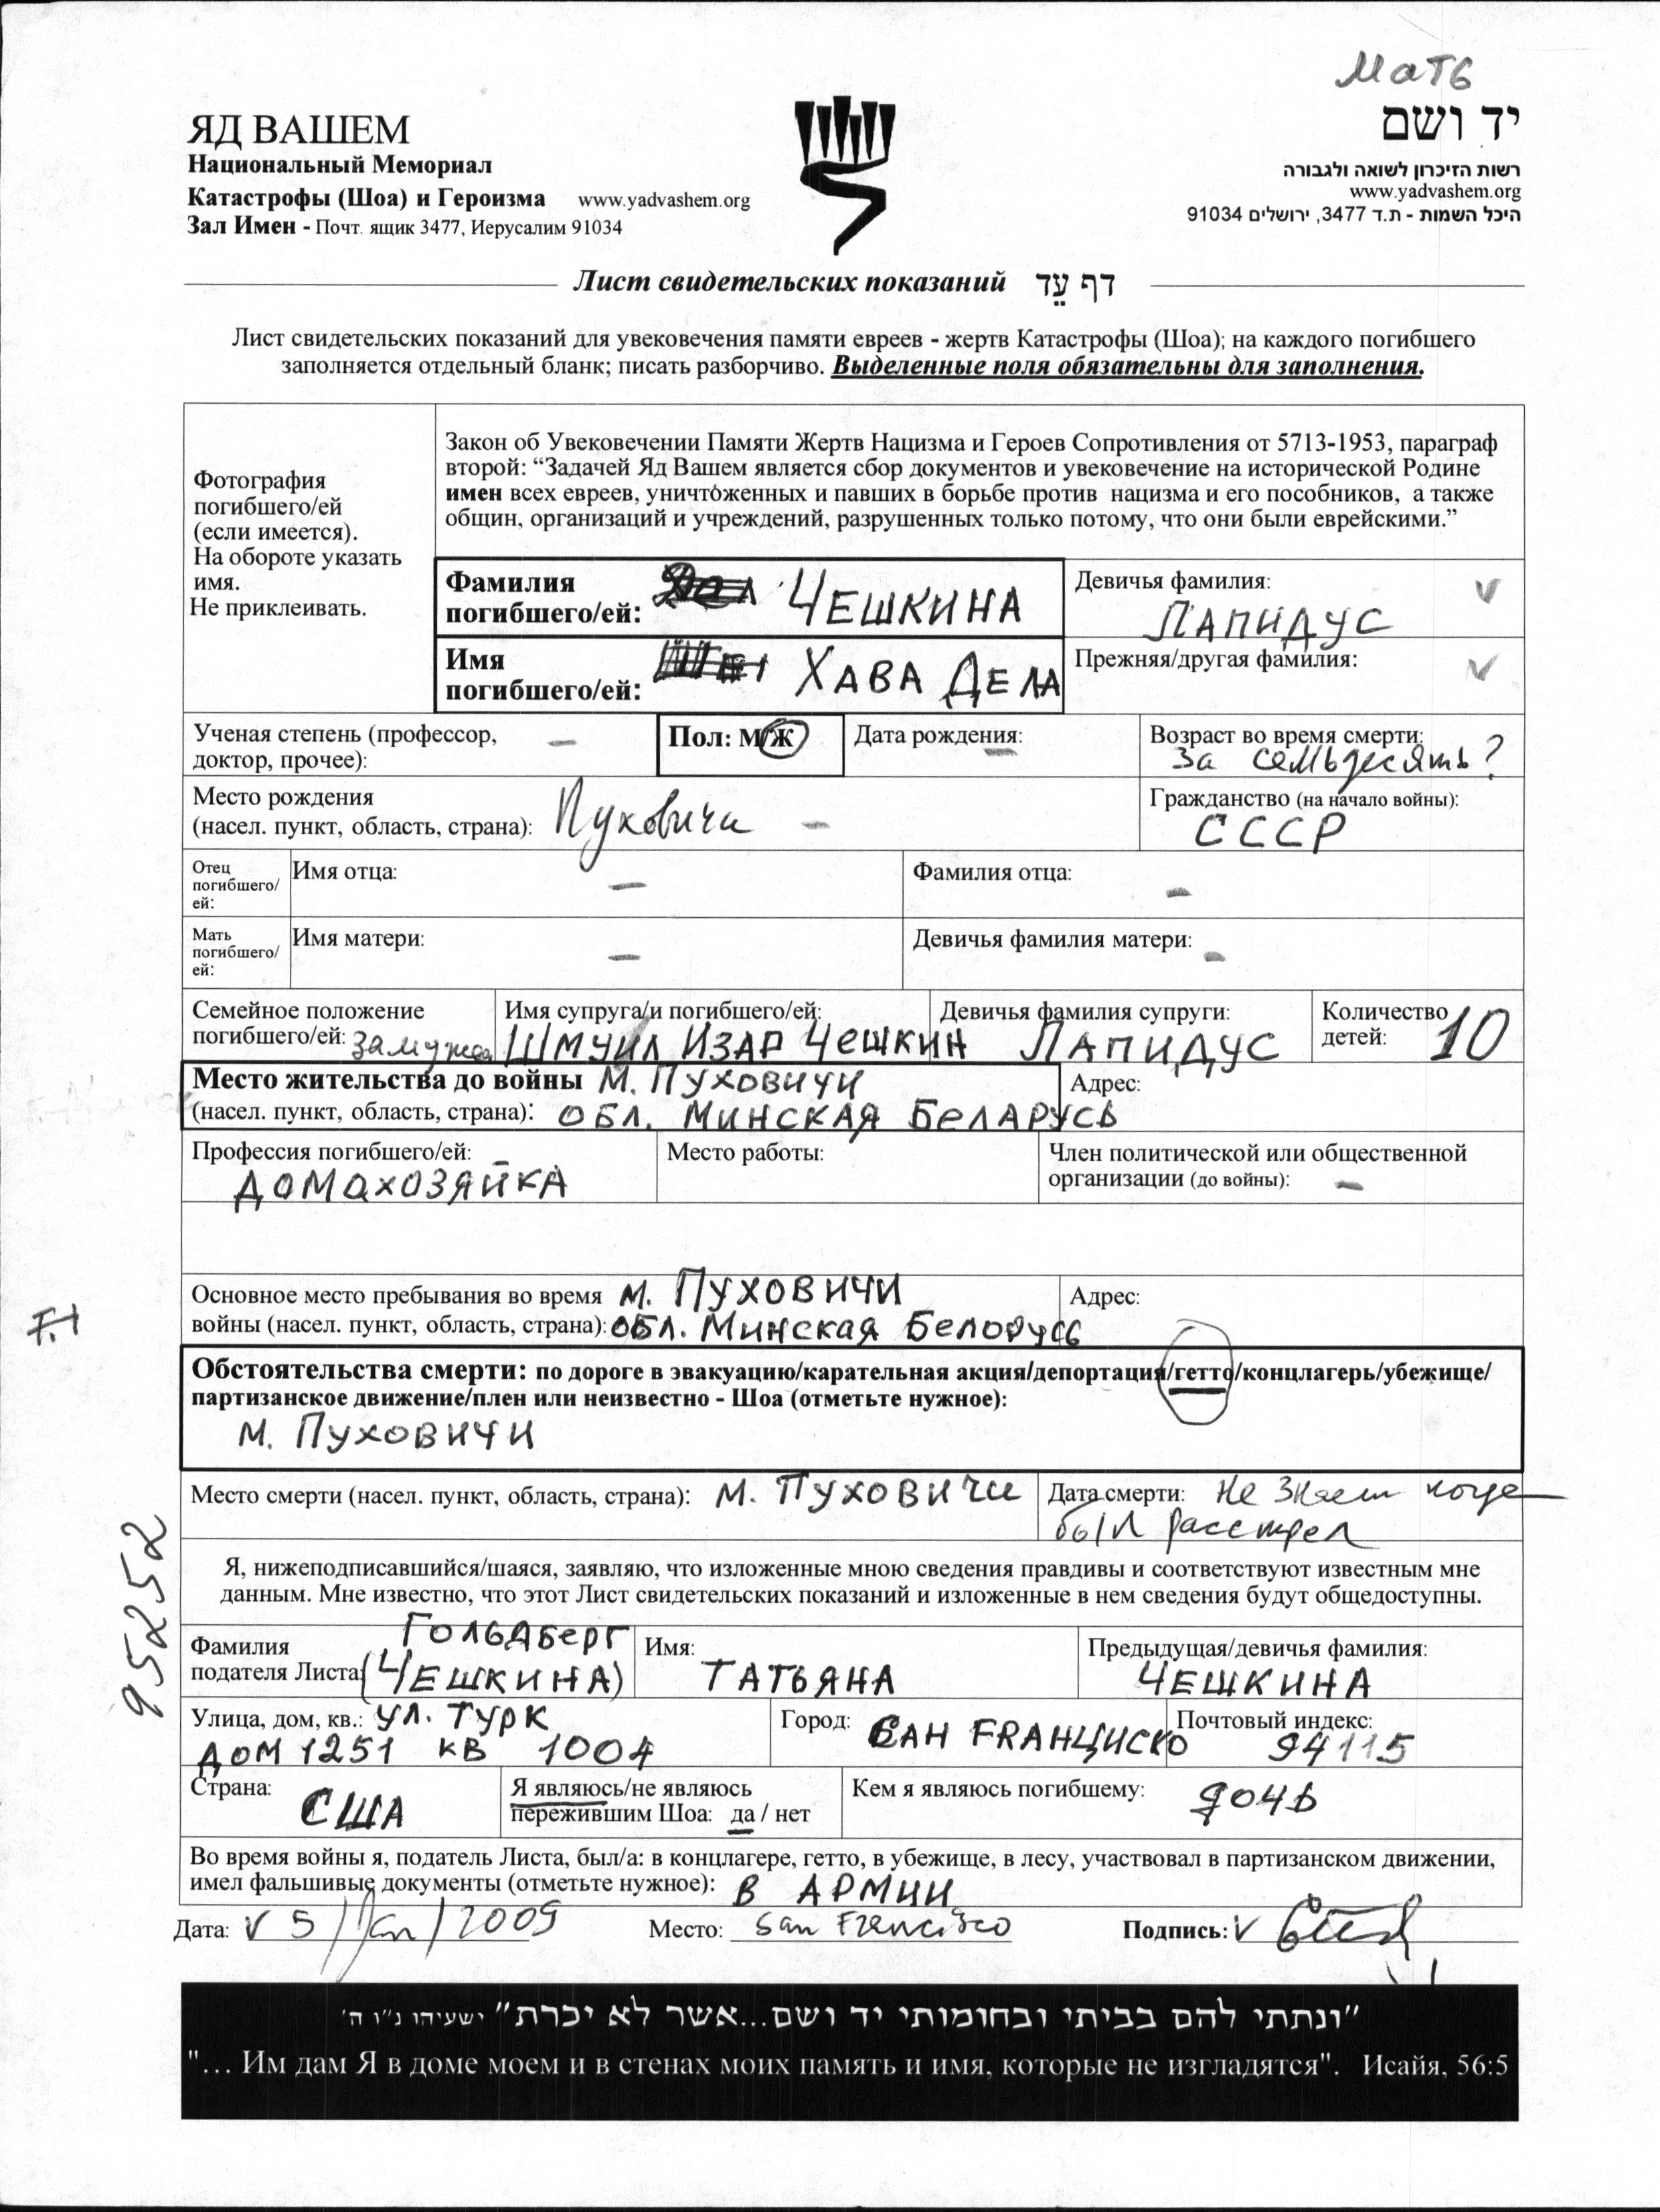 Мать
ЯД ВАШЕМ
Национальный Мемориал
Катастрофы (Шоа) и Героизма www.yadvashem.org
Зал Имен - Почт. ящик 3477, Иерусалим 91034
יד ושם
רשות הזיכרון לשואה ולגבורה
www.yadvashem.org
היכל השמות - ת.ד 3477, ירושלים 91034
Лист свидетельских показаний דף עֵד
Лист свидетельских показаний для увековечения памяти евреев - жертв Катастрофы (Шоа); на каждого погибшего
заполняется отдельный бланк; писать разборчиво. Выделенные поля обязательны для заполнения.
Фотография
погибшего/ей
(если имеется).
На обороте указать
имя.
Не приклеивать.
Закон об Увековечении Памяти Жертв Нацизма и Героев Сопротивления от 5713-1953, параграф
второй: “Задачей Яд Вашем является сбор документов и увековечение на исторической Родине
имен всех евреев, уничтоженных и павших в борьбе против нацизма и его пособников, а также
общин, организаций и учреждений, разрушенных только потому, что они были еврейскими.”
Фамилия
погибшего/ей: ЧЕШКИНА
Девичья фамилия: V
ЛАПИДУС
Имя
погибшего/ей: ХАВА ДЕЛА
Прежняя/другая фамилия: V
Ученая степень (профессор, —
доктор, прочее):
Пол: М/Ж
Дата рождения: —
Возраст во время смерти:
за семьдесять?
Место рождения
(насел. пункт, область, страна): Пуховичи —
Гражданство (на начало войны):
СССР
Отец
погибшего/
ей:
Имя отца: —
Фамилия отца: —
Мать
погибшего/
ей:
Имя матери: —
Девичья фамилия матери: —
Семейное положение
погибшего/ей: замужем
Имя супруга/и погибшего/ей:
ШМУИЛ ИЗАР ЧЕШКИН
Девичья фамилия супруги:
ЛАПИДУС
Количество
детей: 10
Место жительства до войны М. ПУХОВИЧИ
(насел. пункт, область, страна): ОБЛ. МИНСКАЯ БЕЛАРУСЬ
Адрес:
Профессия погибшего/ей:
ДОМОХОЗЯЙКА
Место работы:
Член политической или общественной
организации (до войны): —
Основное место пребывания во время М. ПУХОВИЧИ
войны (насел. пункт, область, страна): ОБЛ. Минская Белорусь
Адрес:
Обстоятельства смерти: по дороге в эвакуацию/карательная акция/депортация/гетто/концлагерь/убежище/
партизанское движение/плен или неизвестно - Шоа (отметьте нужное):
М. ПУХОВИЧИ
Место смерти (насел. пункт, область, страна): М. ПУХОВИЧИ
Дата смерти: Не знаем когда
был расстрел
Я, нижеподписавшийся/шаяся, заявляю, что изложенные мною сведения правдивы и соответствуют известным мне
данным. Мне известно, что этот Лист свидетельских показаний и изложенные в нем сведения будут общедоступны.
952552
Фамилия ГОЛЬДБЕРГ
подателя Листа: (ЧЕШКИНА)
Имя:
ТАТЬЯНА
Предыдущая/девичья фамилия:
ЧЕШКИНА
Улица, дом, кв.: УЛ. ТУРК
ДОМ 1251 КВ 1004
Город: САН FRАНЦИСКО
Почтовый индекс:
94115
Страна:
США
Я являюсь/не являюсь
пережившим Шоа: да / нет
Кем я являюсь погибшему: дочь
Во время войны я, податель Листа, был/а: в концлагере, гетто, в убежище, в лесу, участвовал в партизанском движении,
имел фальшивые документы (отметьте нужное): В АРМИИ
Дата: V 5/Jan/2009
Место: San Francisco
Подпись: V
"ונתתי להם בביתי ובחומותי יד ושם...אשר לא יכרת" ישעיהו נ"ו ה'
"... Им дам Я в доме моем и в стенах моих память и имя, которые не изгладятся". Исайя, 56:5